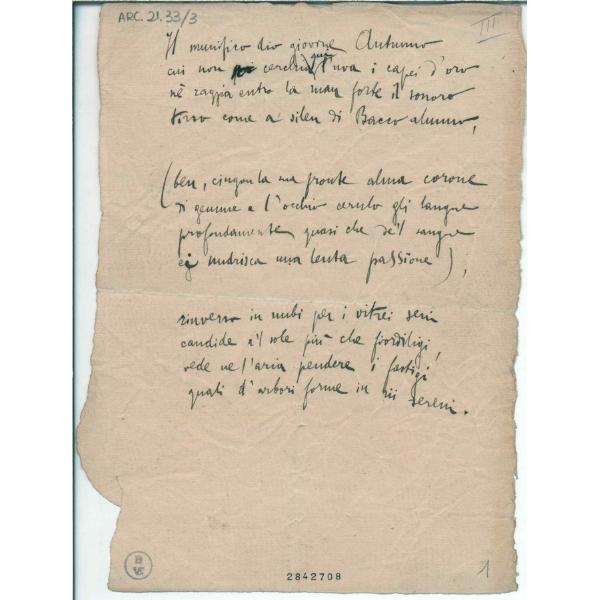 ARC. 21. 33/3
III
Il munifico dio giovine Autunno
cui non cerchia qui l'uva i capei d'oro
nè raggia entro la man forte il sonoro
tirso come a silen di Bacco alunno,
(ben, cingon la sua fronte alma corone
di gemme e l'occhio cerulo gli langue
profondamente quasi che de'l sangue
ei nudrisca una lenta passione),
rinverso in nubi per i vitrei seni
candide a'l sole più che fiordiligi,
vede ne l'aria pendere i fastigi
quali d'arbori forme in rii sereni.
B
VE
2842708
1